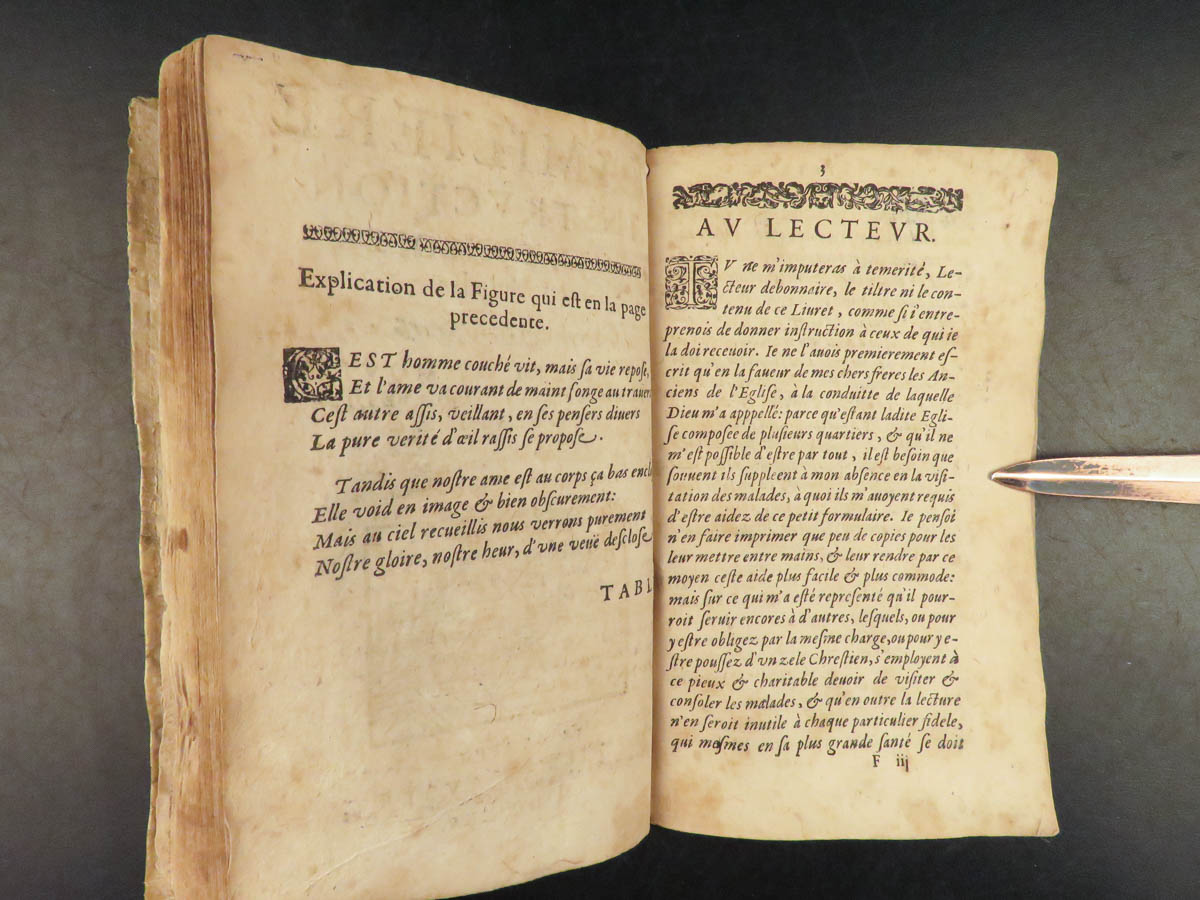 Explication de la Figure qui est en la page
precedente.
CEST homme couché vit, mais sa vie repose,
Et l'ame va courant de maint songe au traver
Cest autre assis, veillant, en ses pensers divers
La pure verité d'œil rassis se propose.
Tandis que nostre ame est au corps ça bas encl
Elle void en image & bien obscurement:
Mais au ciel recueillis nous verrons purement
Nostre gloire, nostre heur, d'vne veuë desclose
TABL
3
AV LECTEVR.
TV ne m'imputeras à temerité, Le-
cteur debonnaire, le tiltre ni le con-
tenu de ce Liuret, comme si i'entre-
prenois de donner instruction à ceux de qui ie
la doi receuoir. Ie ne l'auois premierement es-
crit qu'en la faueur de mes chers freres les An-
ciens de l'Eglise, à la conduitte de laquelle
Dieu m'a apppellé: parce qu'estant ladite Egli-
se composee de plusieurs quartiers, & qu'il ne
m'est possible d'estre par tout, il est besoin que
souuent ils suppleent à mon absence en la visi-
tation des malades, à quoi ils m'auoyent requis
d'estre aidez de ce petit formulaire. Ie pensoi
n'en faire imprimer que peu de copies pour les
leur mettre entre mains, & leur rendre par ce
moyen ceste aide plus facile & plus commode:
mais sur ce qui m'a esté representé qu'il pour-
roit seruir encores à d'autres, lesquels, ou pour
y estre obligez par la mesme charge, ou pour y e-
stre poussez d'vn zele Chrestien, s'employent à
ce pieux & charitable deuoir de visiter &
consoler les malades, & qu'en outre la lecture
n'en seroit inutile à chaque particulier fidele,
qui mesmes en sa plus grande santé se doit
F iij